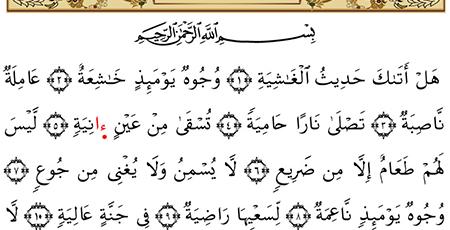 بِسْمِ ٱللَّهِ ٱلرَّحْمَٰنِ ٱلرَّحِيمِ
هَلْ أَتَىٰكَ حَدِيثُ ٱلْغَٰشِيَةِ ﴿١﴾ وُجُوهٌ يَوْمَئِذٍ خَٰشِعَةٌ ﴿٢﴾ عَامِلَةٌ
نَّاصِبَةٌ ﴿٣﴾ تَصْلَىٰ نَارًا حَامِيَةً ﴿٤﴾ تُسْقَىٰ مِنْ عَيْنٍ ءَانِيَةٍ ﴿٥﴾ لَّيْسَ
لَهُمْ طَعَامٌ إِلَّا مِن ضَرِيعٍ ﴿٦﴾ لَّا يُسْمِنُ وَلَا يُغْنِى مِن جُوعٍ ﴿٧﴾
وُجُوهٌ يَوْمَئِذٍ نَّاعِمَةٌ ﴿٨﴾ لِّسَعْيِهَا رَاضِيَةٌ ﴿٩﴾ فِى جَنَّةٍ عَالِيَةٍ ﴿١٠﴾ لَّا